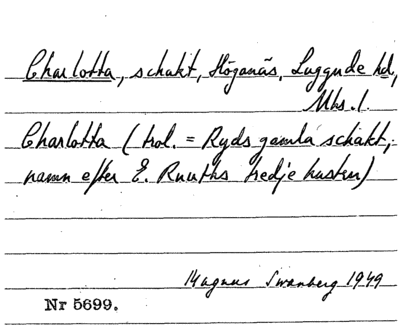 Charlotta, schakt, Höganäs, Luggude hd,
Mbs. l.
Charlotta (hol. = Ryds gamla schakt,
namn efter E. Ruuths tredje hustru)
Magnus Swanberg 1949
Nr 5699.